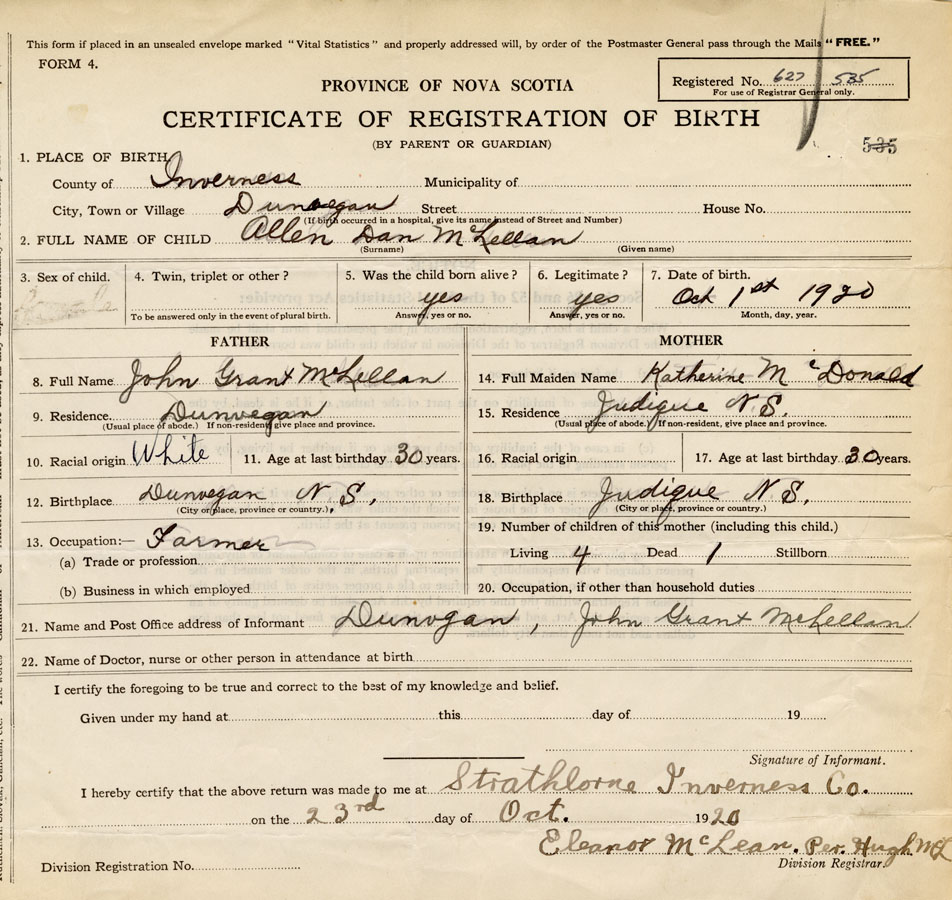 This form if placed in an unsealed envelope marked "Vital Statistics" and properly addressed will, by order of the Postmaster General pass through the Mails "FREE."
FORM 4.
PROVINCE OF NOVA SCOTIA
Registered No. 627 535
For use of Registrar General only.
CERTIFICATE OF REGISTRATION OF BIRTH
(BY PARENT OR GUARDIAN)
535
1. PLACE OF BIRTH
County of Inverness Municipality of
City, Town or Village Dunvegan Street House No.
(If birth occurred in a hospital, give its name instead of Street and Number)
2. FULL NAME OF CHILD Allen Dan McLellan
(Surname) (Given name)
3. Sex of child. 4. Twin, triplet or other? 5. Was the child born alive? 6. Legitimate? 7. Date of birth.
yes yes Oct 1st 1920
To be answered only in the event of plural birth. Answer, yes or no. Answer, yes or no. Month, day, year.
FATHER MOTHER
8. Full Name John Grant McLellan 14. Full Maiden Name Katherine McDonald
9. Residence. Dunvegan 15. Residence Judique N S.
(Usual place of abode.) If non-resident, give place and province. (Usual place of abode.) If non-resident, give place and province.
10. Racial origin White 11. Age at last birthday 30 years. 16. Racial origin 17. Age at last birthday 30 years.
12. Birthplace Dunvegan N S, 18. Birthplace Judique N S,
(City or place, province or country.) (City or place, province or country.)
13. Occupation:— Farmer 19. Number of children of this mother (including this child.)
(a) Trade or profession Living 4 Dead 1 Stillborn
(b) Business in which employed 20. Occupation, if other than household duties
21. Name and Post Office address of Informant Dunvgan, John Grant McLellan
22. Name of Doctor, nurse or other person in attendance at birth
I certify the foregoing to be true and correct to the best of my knowledge and belief.
Given under my hand at this day of 19
Signature of Informant.
I hereby certify that the above return was made to me at Strathlorne Inverness Co.
on the 23rd day of Oct. 1920
Eleanor McLean. Per. Hugh McL
Division Registration No. Division Registrar.